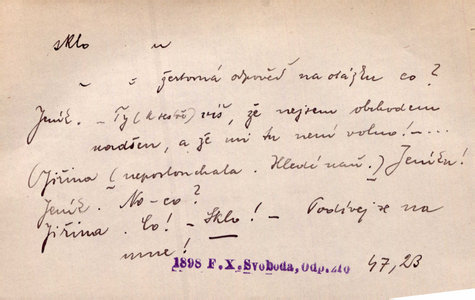 sklo n
žertovná odpověď na otázku co?
Jeník. – Ty (k sestře) víš, že nejsem obchodem
nadšen, a že mi tu není volno! – ...
(Jiřina (neposlouchala. Hledí naň.) Jeníku!
Jeník. No – co?
Jiřina. Co! – Sklo! – Podívej se na
mne!
1898 F. X. Svoboda, Odp. zlo 47, 23